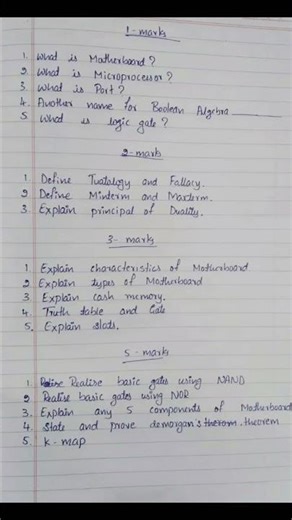 1-marks
1. What is Motherboard?
2. What is Microprocessor?
3. What is Port?
4. Another name for Boolean Algebra ______
5. What is logic gate?
2-mark
1. Define Tuatalogy and Fallacy.
2 Define Minterm and Maxterm.
3. Explain principal of Duality.
3- marks
1. Explain characteristics of Motherboard
2 Explain types of Motherboard
3. Explain cash memory.
4. Truth table and Gate
5. Explain slots.
5 - marks
1. Realise basic gates using NAND
2 Realise basic gates using NOR
3. Explain any 5 components of Motherboard
4 State and prove demorgan's theram. theorem
5. K-map